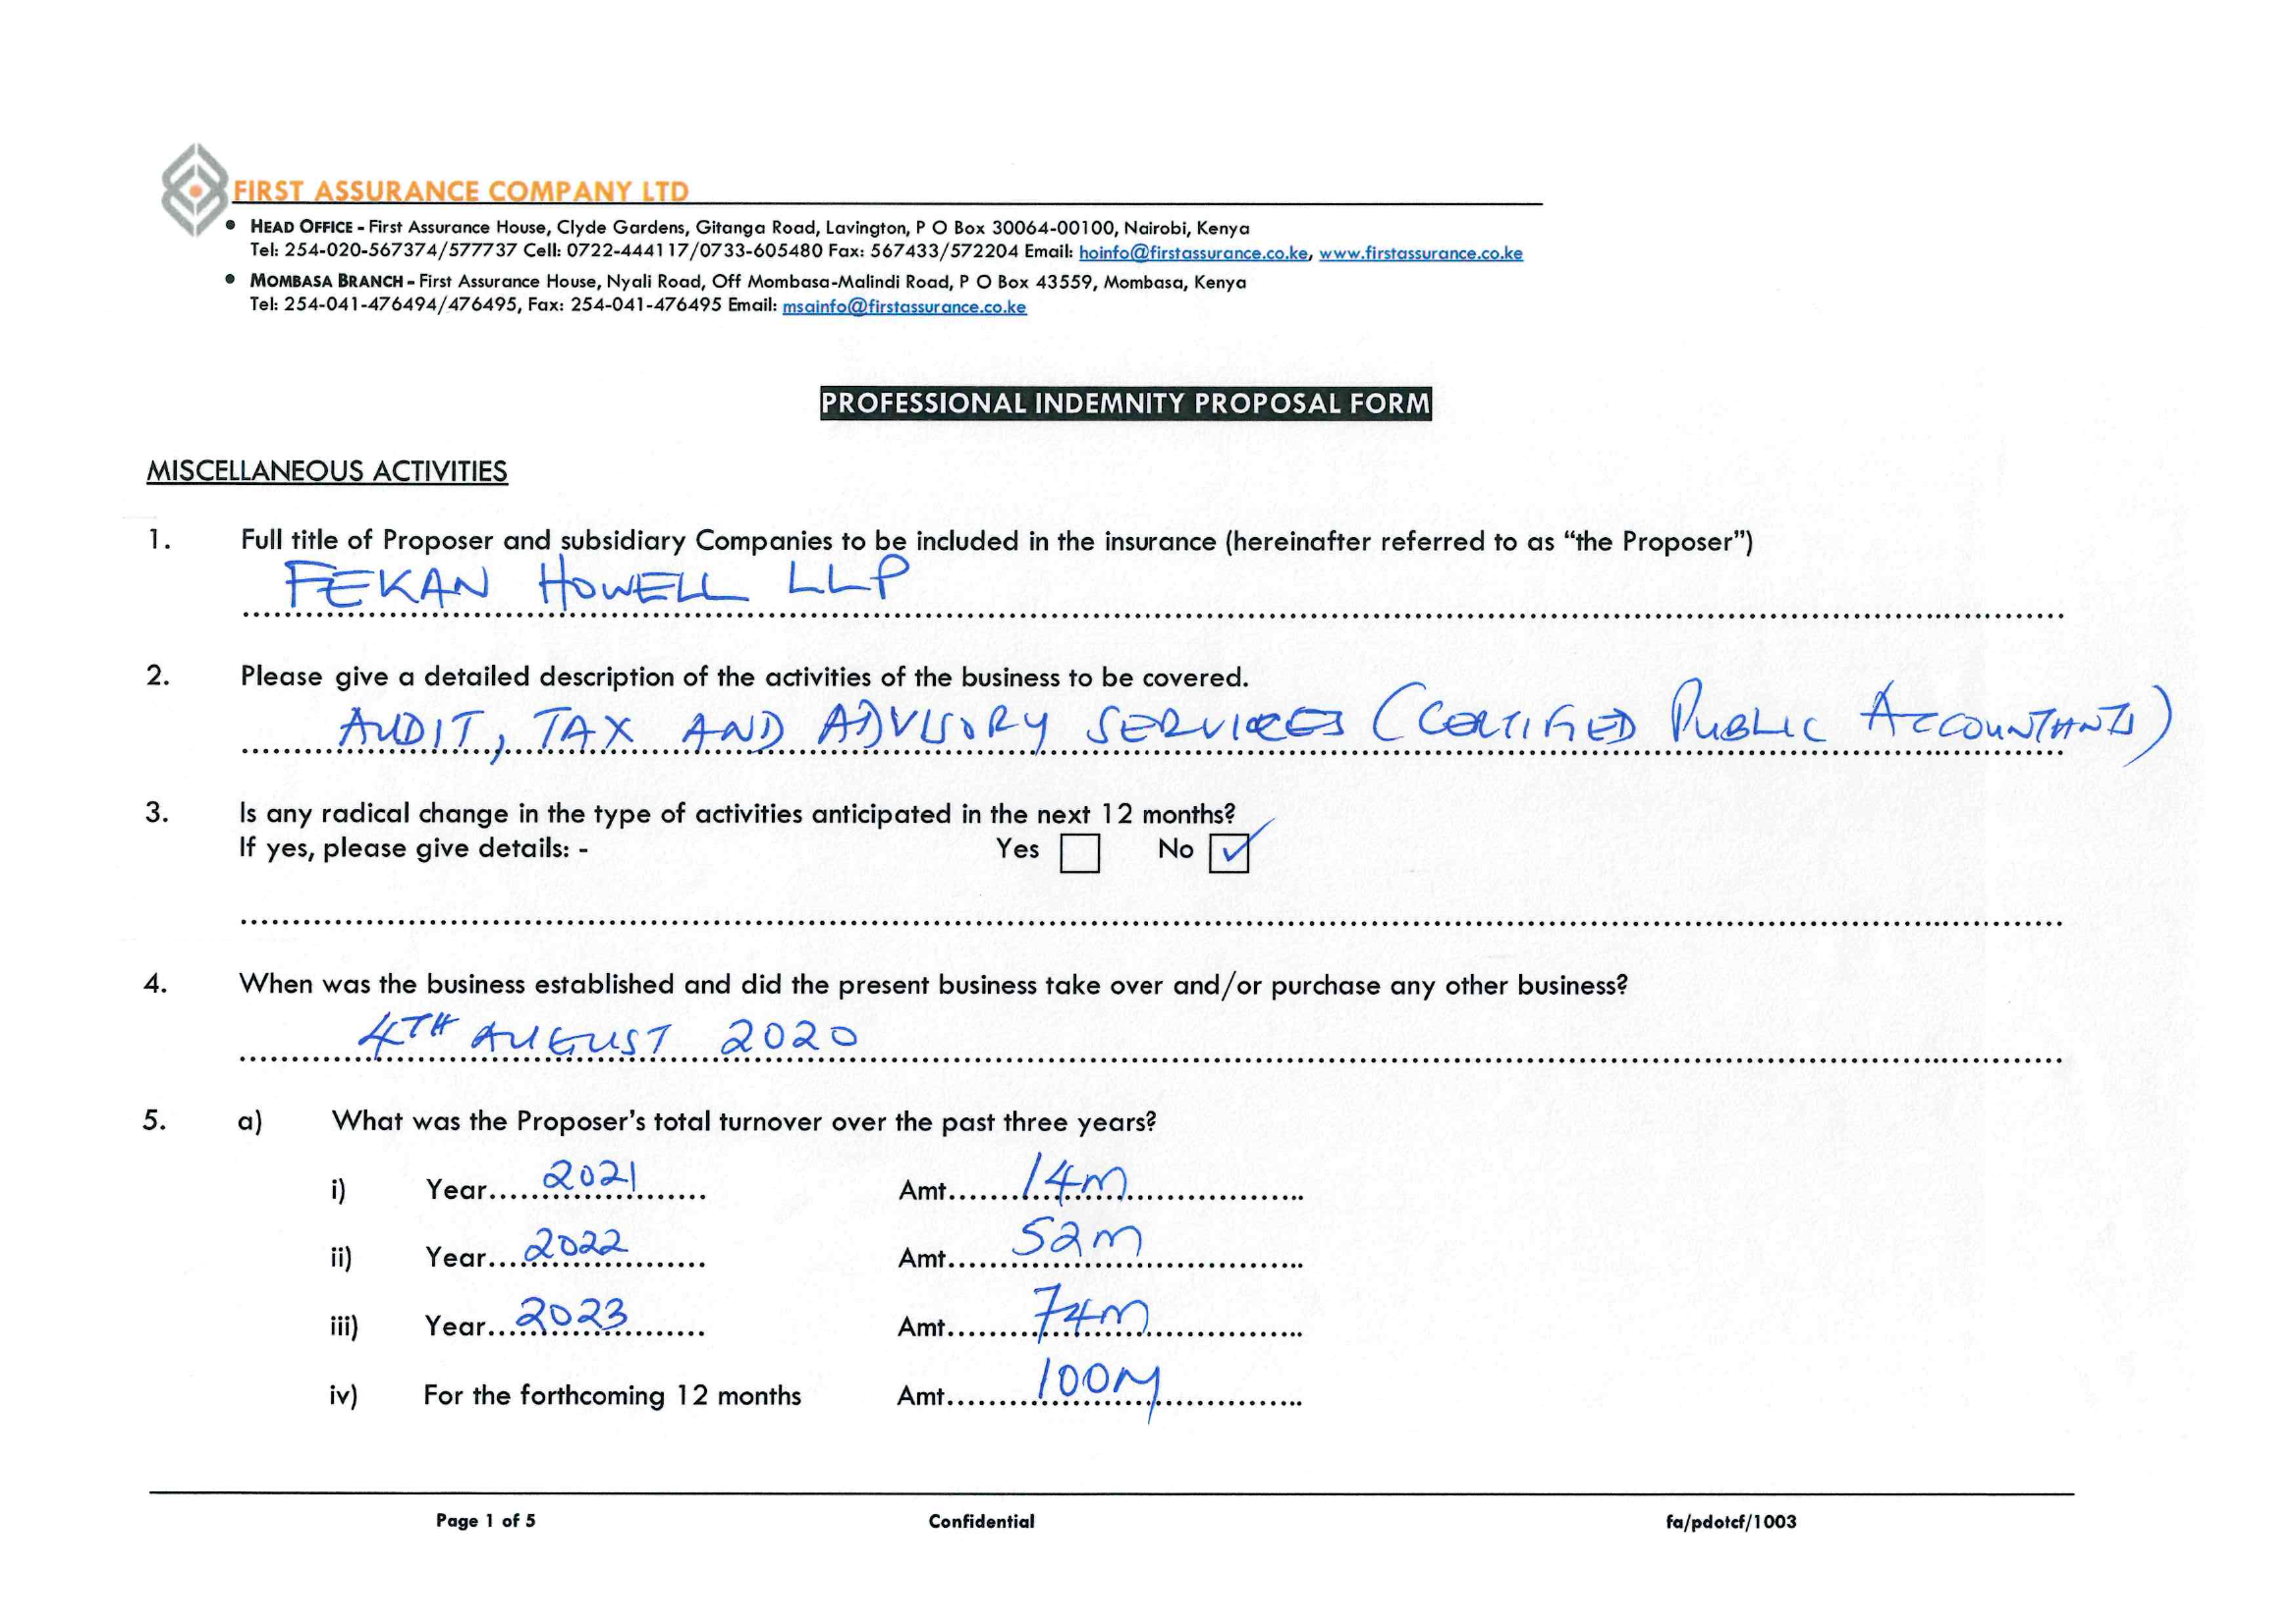 FIRST ASSURANCE COMPANY LTD
• HEAD OFFICE - First Assurance House, Clyde Gardens, Gitanga Road, Lavington, P O Box 30064-00100, Nairobi, Kenya
Tel: 254-020-567374/577737 Cell: 0722-444117/0733-605480 Fax: 567433/572204 Email: hoinfo@firstassurance.co.ke, www.firstassurance.co.ke
• MOMBASA BRANCH - First Assurance House, Nyali Road, Off Mombasa-Malindi Road, P O Box 43559, Mombasa, Kenya
Tel: 254-041-476494/476495, Fax: 254-041-476495 Email: msainfo@firstassurance.co.ke
PROFESSIONAL INDEMNITY PROPOSAL FORM
MISCELLANEOUS ACTIVITIES
1. Full title of Proposer and subsidiary Companies to be included in the insurance (hereinafter referred to as “the Proposer”)
FEKAN HOWELL LLP
2. Please give a detailed description of the activities of the business to be covered.
AUDIT, TAX AND ADVISORY SERVICES (CERTIFIED PUBLIC ACCOUNTANTS)
3. Is any radical change in the type of activities anticipated in the next 12 months?
If yes, please give details: - Yes No ✓
4. When was the business established and did the present business take over and/or purchase any other business?
4TH AUGUST 2020
5. a) What was the Proposer’s total turnover over the past three years?
i) Year 2021 Amt 14m
ii) Year 2022 Amt 52m
iii) Year 2023 Amt 74m
iv) For the forthcoming 12 months Amt 100M
Page 1 of 5 Confidential fa/pdotcf/1003